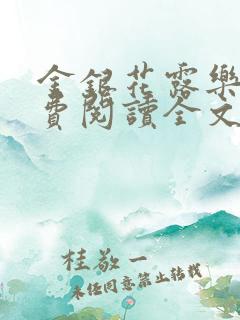 金銀花露樂
費閱讀全文
桂敬一
未经同意禁止转载